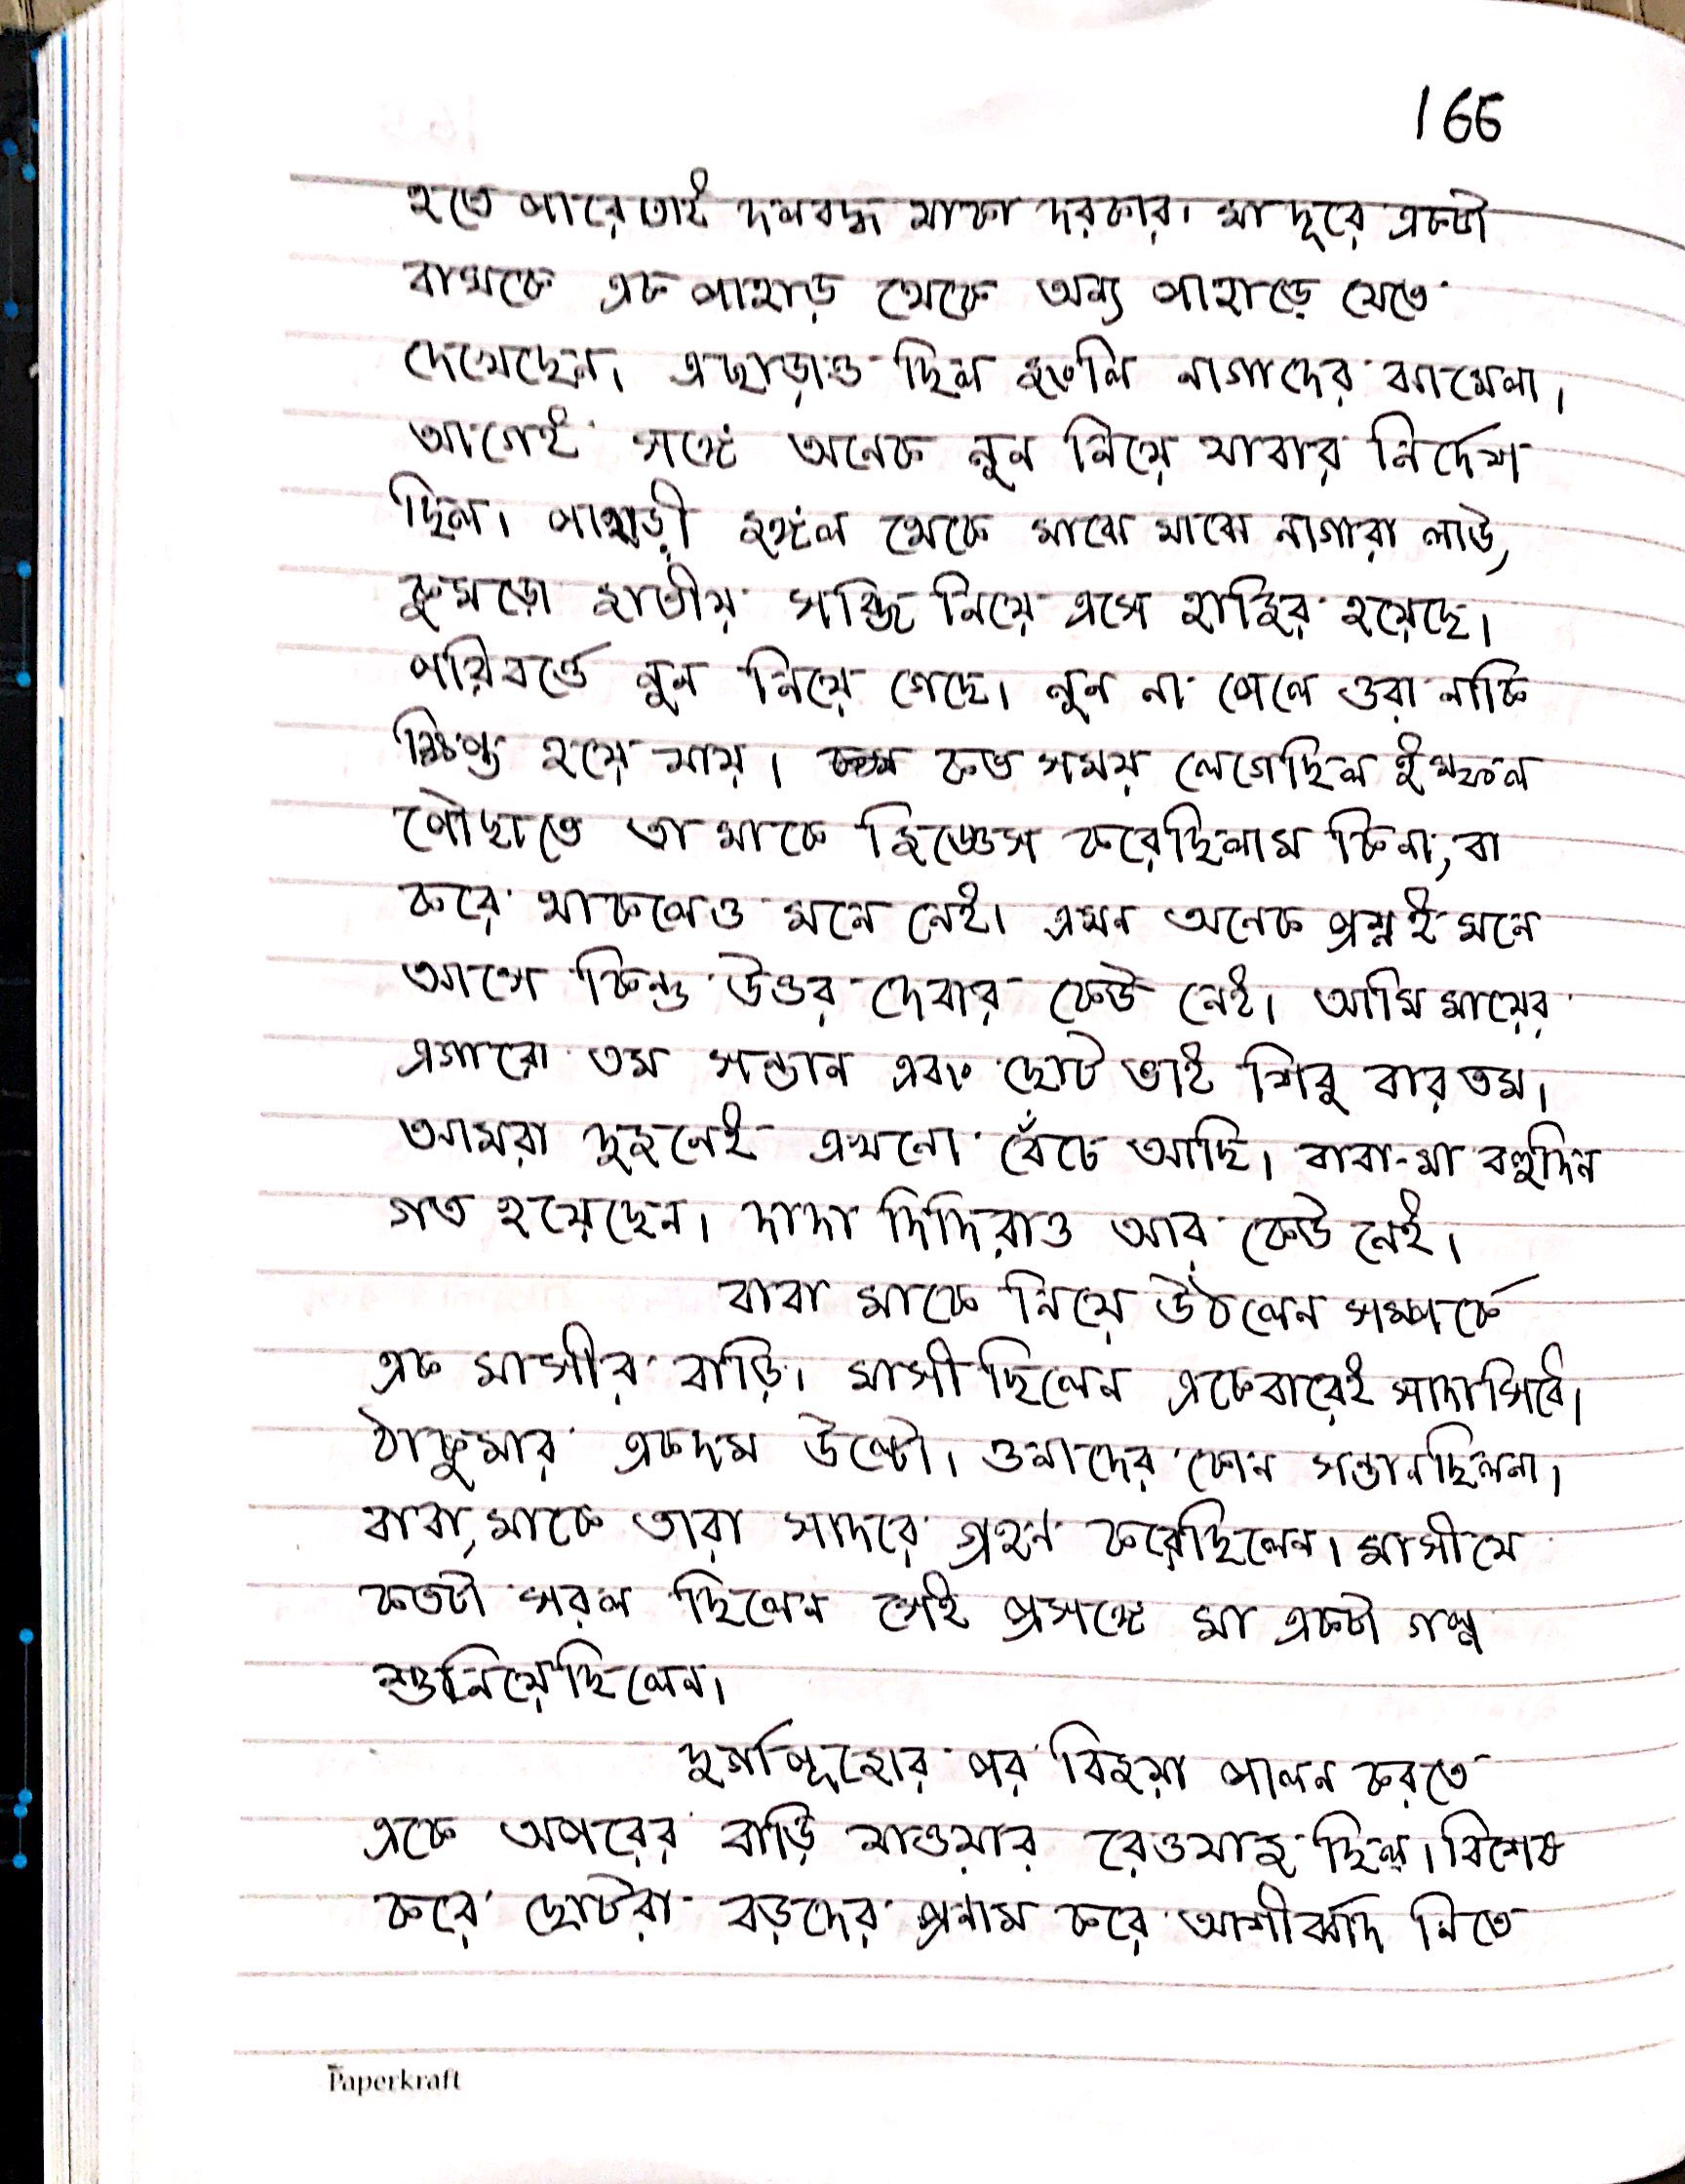 166
হতে পারে তাই দলবদ্ধ থাকা দরকার। মা দূরে একটা
বাঘকে এক পাহাড় থেকে অন্য পাহাড়ে যেতে
দেখেছেন। এছাড়াও ছিল জংলি নাগাদের ঝামেলা।
আগেই সঙ্গে অনেক নুন নিয়ে যাবার নির্দেশ
ছিল। পাহাড়ী জঙ্গল থেকে মাঝে মাঝে নাগারা লাউ,
কুমড়ো জাতীয় সব্জি নিয়ে এসে হাজির হয়েছে।
পরিবর্তে নুন নিয়ে গেছে। নুন না পেলে ওরা নাকি
ক্ষিপ্ত হয়ে যায়। কত সময় লেগেছিল ইম্ফল
পৌছাতে তা মাকে জিজ্ঞেস করেছিলাম কিনা, বা
করে থাকলেও মনে নেই। এমন অনেক প্রশ্নই মনে
আসে কিন্তু উত্তর দেবার কেউ নেই। আমি মায়ের
এগারো তম সন্তান এবং ছোট ভাই শিবু বারতম।
আমরা দুজনেই এখনো বেঁচে আছি। বাবা-মা বহুদিন
গত হয়েছেন। দাদা দিদিরাও আর কেউ নেই।
বাবা মাকে নিয়ে উঠলেন সম্পর্কে
এক মাসীর বাড়ি। মাসী ছিলেন একেবারেই সাদাসিধে।
ঠাকুমার একদম উল্টো। ওনাদের কোন সন্তান ছিলনা।
বাবা, মাকে তারা সাদরে গ্রহন করেছিলেন। মাসী যে
কতটা সরল ছিলেন সেই প্রসঙ্গে মা একটা গল্প
শুনিয়েছিলেন।
দুর্গাপূজোর পর বিজয়া পালন করতে
একে অপরের বাড়ি যাওয়ার রেওয়াজ ছিল। বিশেষ
করে ছোটরা বড়দের প্রনাম করে আশীর্ব্বাদ নিতে
Paperkraft